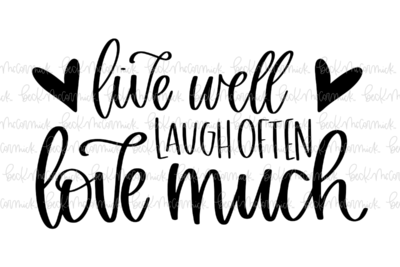 live well
LAUGH OFTEN
love much